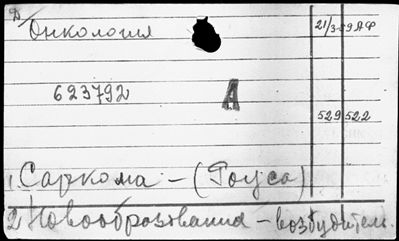 Д/
Онкология
21/3-59 АФ
623792
А
529 522
1. Саркома - (Рауса)
2 Новообразования - возбудитель.